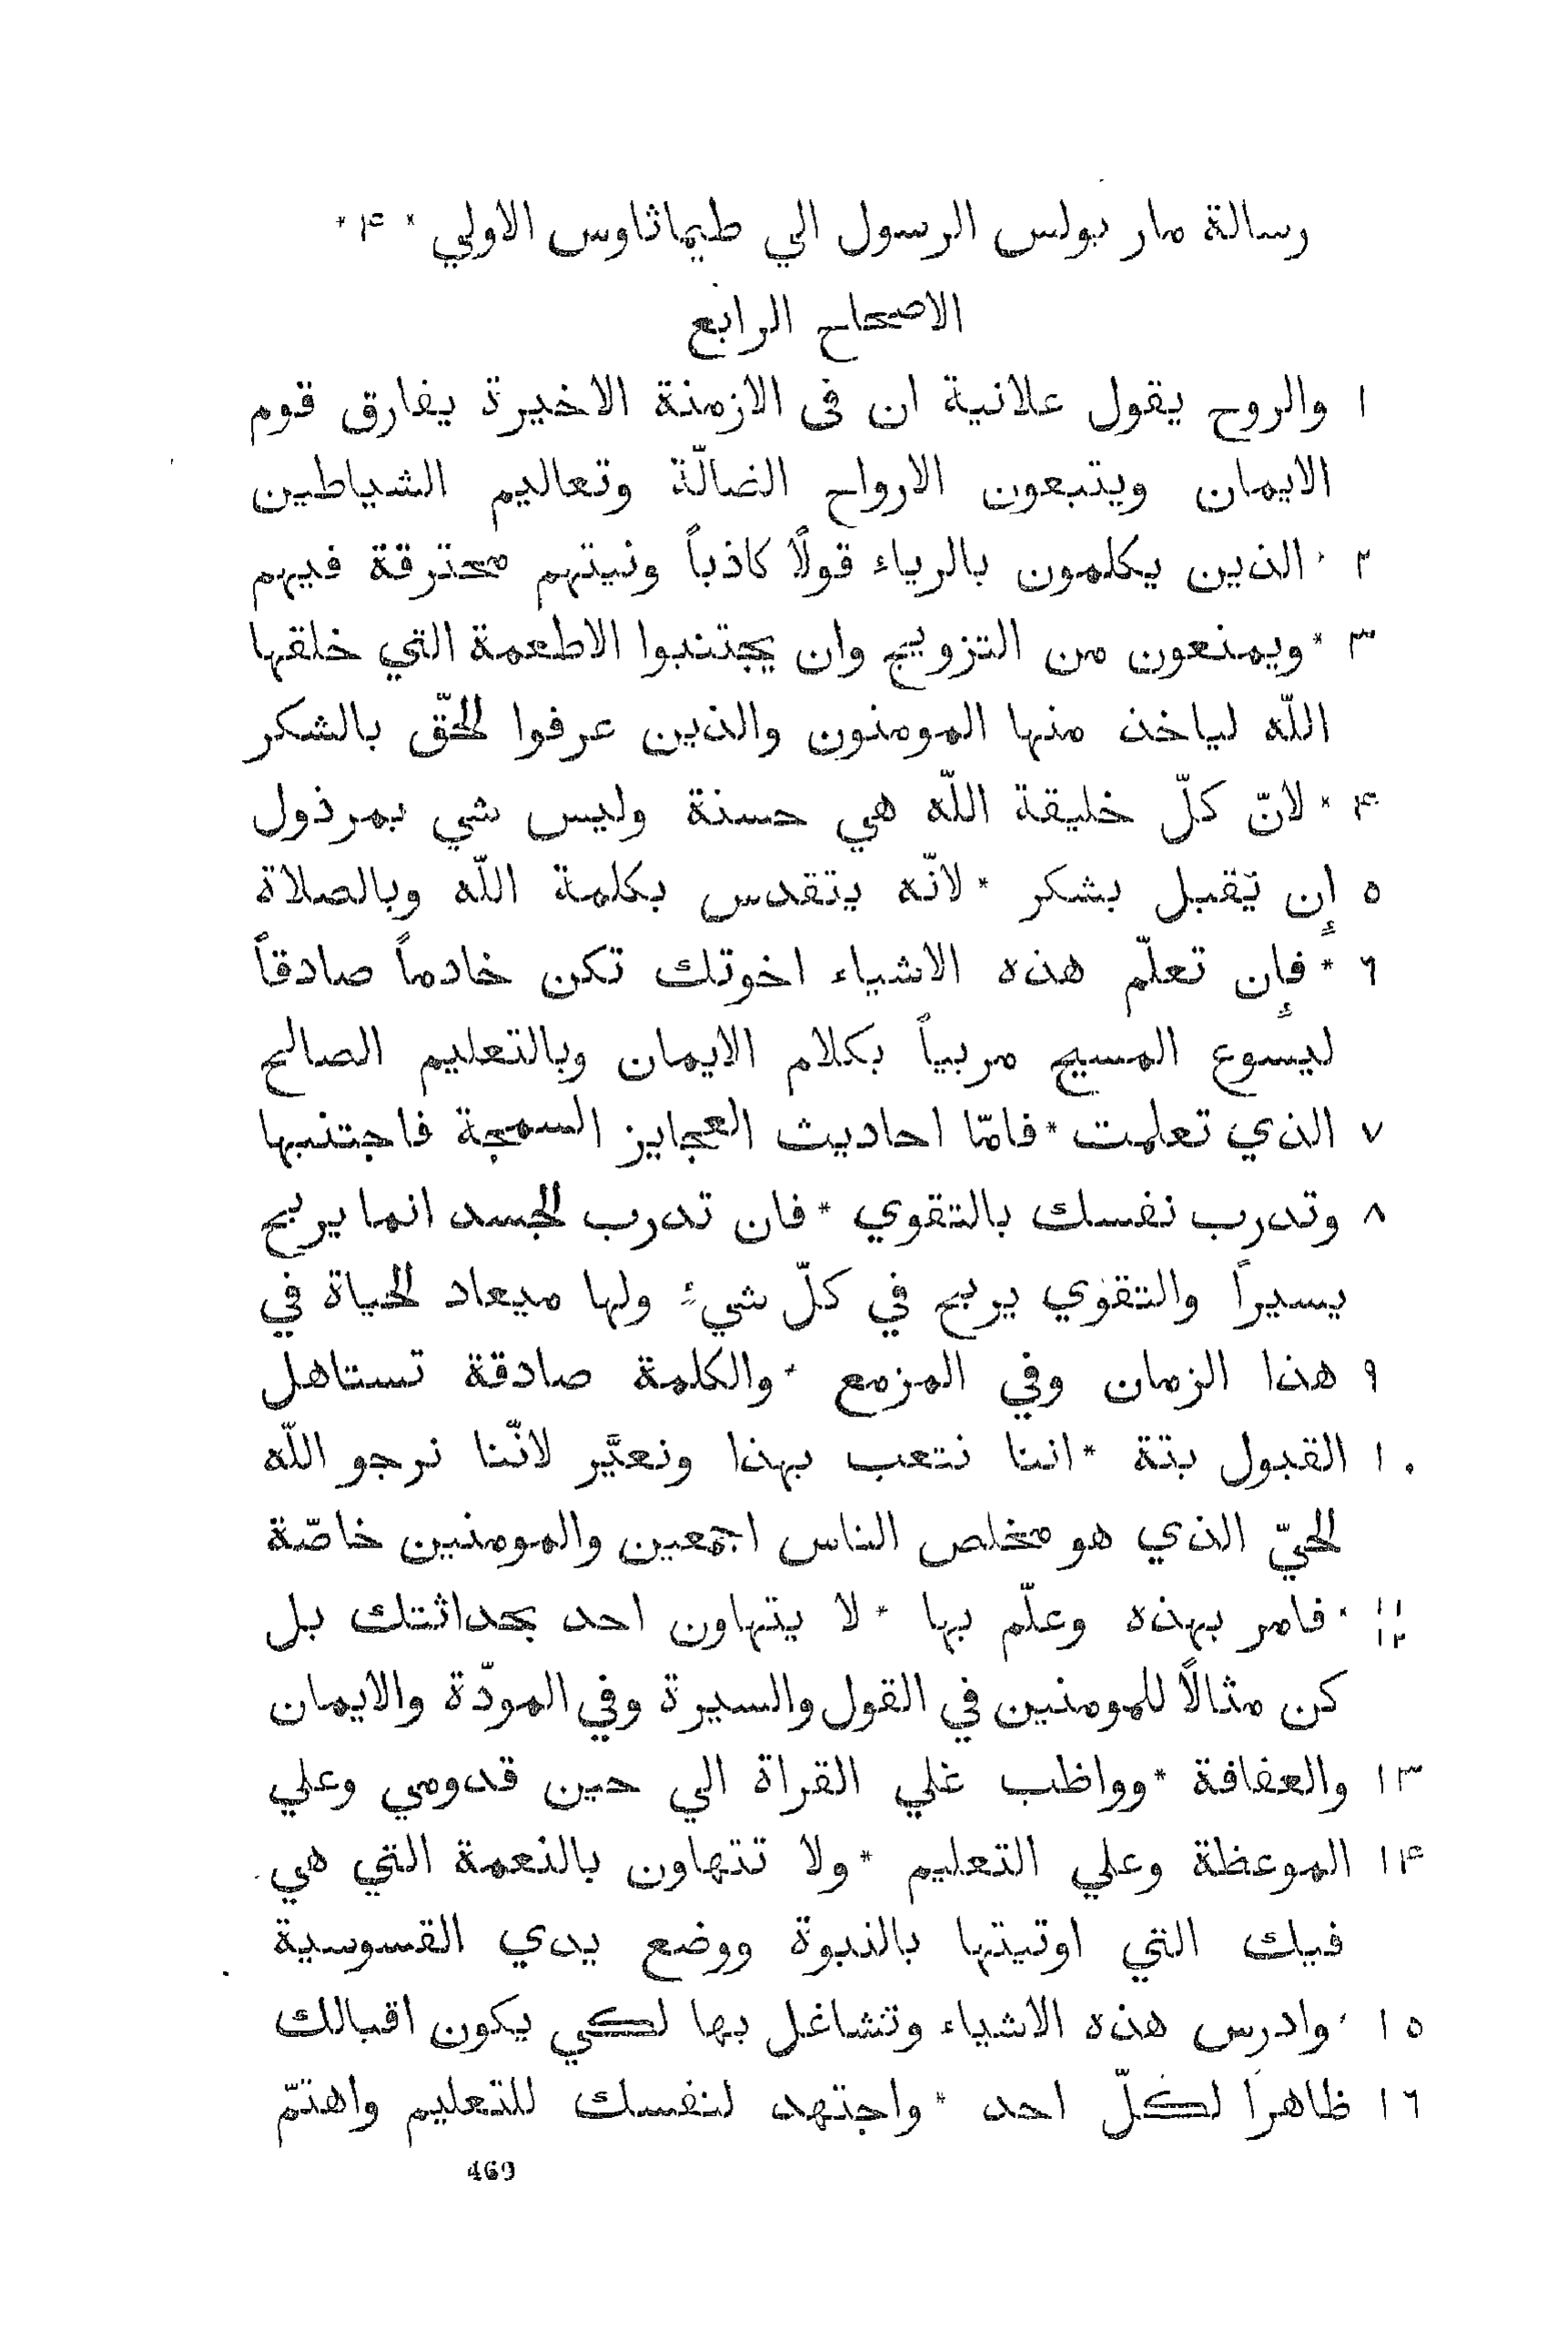 رسالة مار بولس الرسول الي طيماثاوس الاولي * ۴ *
الاصحاح الرابع
١ والروح يقول علانية ان فى الازمنة الاخيرة يفارق قوم
الايمان ويتبعون الارواح الضالّة وتعاليم الشياطين
٢ * الذين يكلمون بالرياء قولًا كاذباً ونيتهم محترقة فيهم
٣ * ويمنعون من التزويج وان يجتنبوا الاطعمة التي خلقها
اللّه لياخذ منها المومنون والذين عرفوا الحقّ بالشكر
۴ * لانّ كلّ خليقة اللّه هي حسنة وليس شي بمرذول
٥ إن يّقبل بشكر * لانّه يتقدس بكلمة اللّه وبالصلاة
٦ * فإن تعلّم هذه الاشياء اخوتك تكن خادماً صادقاً
ليسوع المسيح مربياً بكلام الايمان وبالتعليم الصالح
٧ الذي تعلمت * فامّا احاديث العجايز السمجة فاجتنبها
٨ وتدرب نفسك بالتقوي * فان تدرب الجسد انما يربح
يسيراً والتقوي يربح في كلّ شيءٍ ولها ميعاد الحياة في
٩ هذا الزمان وفي المزمع * والكلمة صادقة تستاهل
١٠ القبول بتة * اننا نتعب بهذا ونعيَّر لانّنا نرجو اللّه
الحيّ الذي هو مخلص الناس اجمعين والمومنين خاصّة
١١ ١٢ * فامر بهذه وعلّم بها * لا يتهاون احد بحداثتك بل
كن مثالًا للمومنين في القول والسيرة وفي المودّة والايمان
١٣ والعفافة * وواظب غلي القراة الي حين قدومي وعلي
١۴ الموعظة وعلي التعليم * ولا تتهاون بالنعمة التي هي
فيك التي اوتيتها بالنبوة ووضع يدي القسوسية
١٥ * وادرس هذه الاشياء وتشاغل بها لكي يكون اقبالك
١٦ ظاهراً لكلّ احد * واجتهد لنفسك للتعليم واهتمّ
469